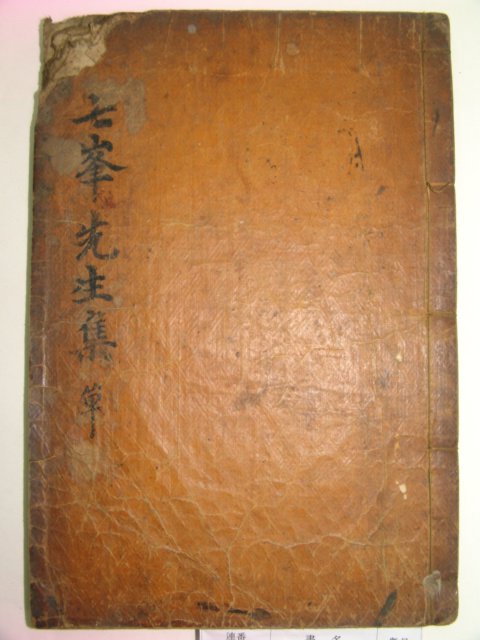 七峯先生集 草
連番
書名